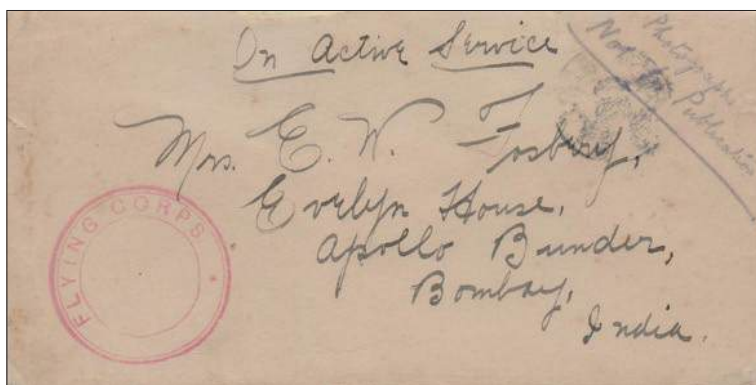 On Active Service
Photographs
Not for Publication
Mrs. E. W. Fosbery,
Evelyn House,
Apollo Bunder,
Bombay,
India.
FLYING CORPS